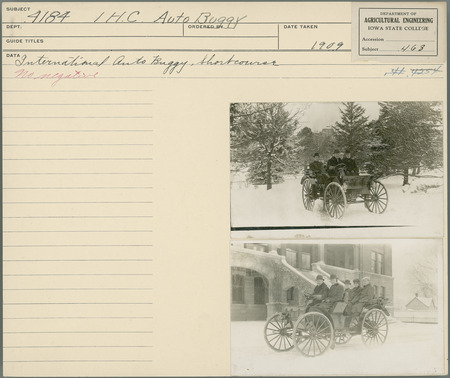 SUBJECT 4184 I.H.C. Auto Buggy
DEPT. ORDERED BY DATE TAKEN
GUIDE TITLES 1909
DEPARTMENT OF
AGRICULTURAL ENGINEERING
IOWA STATE COLLEGE
Accession
Subject 463
DATA
International Auto Buggy, Shortcourse
No negative